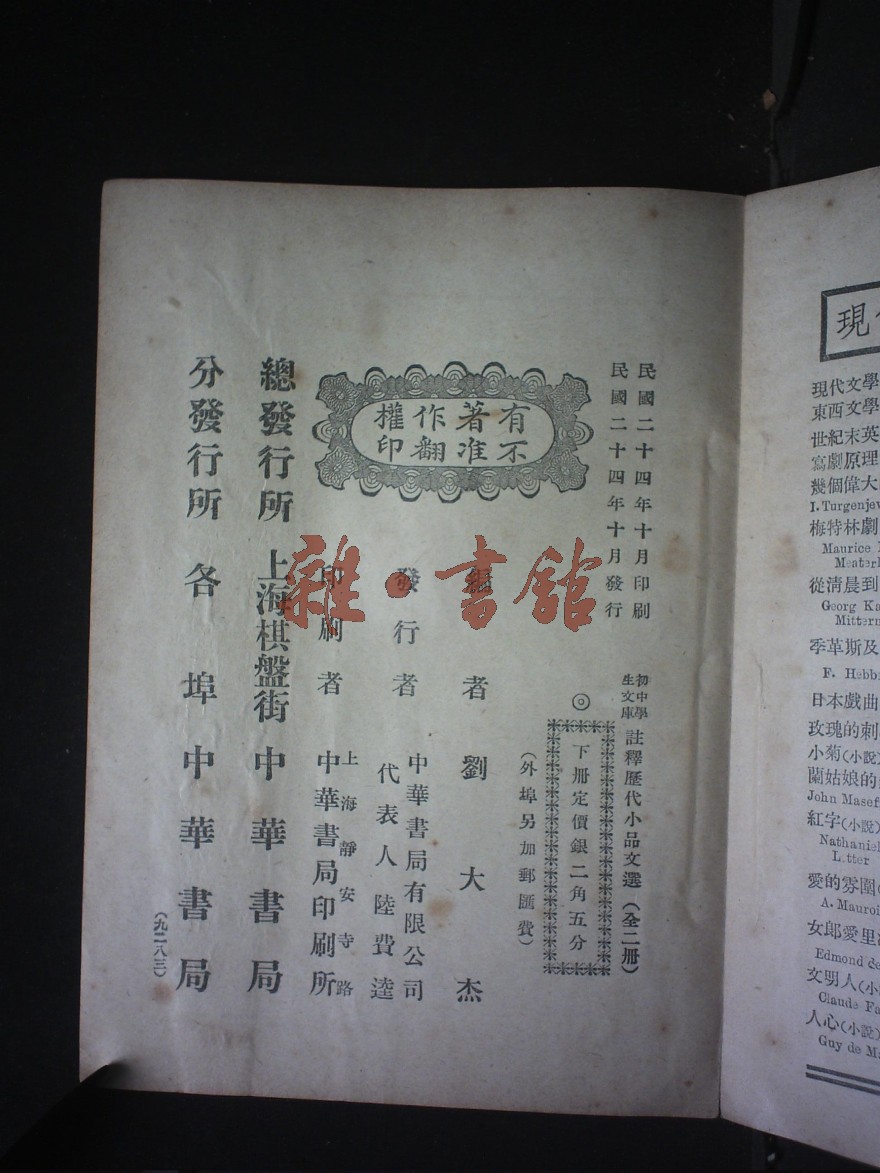 民國二十四年十月印刷
民國二十四年十月發行
初中學
生文庫
註釋歷代小品文選（全二冊）
◎下冊定價銀二角五分
（外埠另加郵匯費）
有著作權
不准翻印
編者劉大杰
發行者
中華書局有限公司
代表人陸費逵
印刷者
上海靜安寺路
中華書局印刷所
總發行所 上海棋盤街 中華書局
分發行所 各埠 中華書局
（九二八三）
雜·書館
現
現代文學
東西文學
世紀末英
寫劇原理
幾個偉大
I. Turgenjew
梅特林劇
Maurice
從清晨到
Georg Ka
Mittern
季革斯及
F. Hebb
日本戲曲
玫瑰的刺
小菊(小說)
蘭姑娘的
John Masef
紅字(小說)
Nathaniel
Letter
愛的雰圍
A. Mauroi
女郎愛里
Edmond de
文明人(小
Claude Fa
人心(小說)
Guy de M